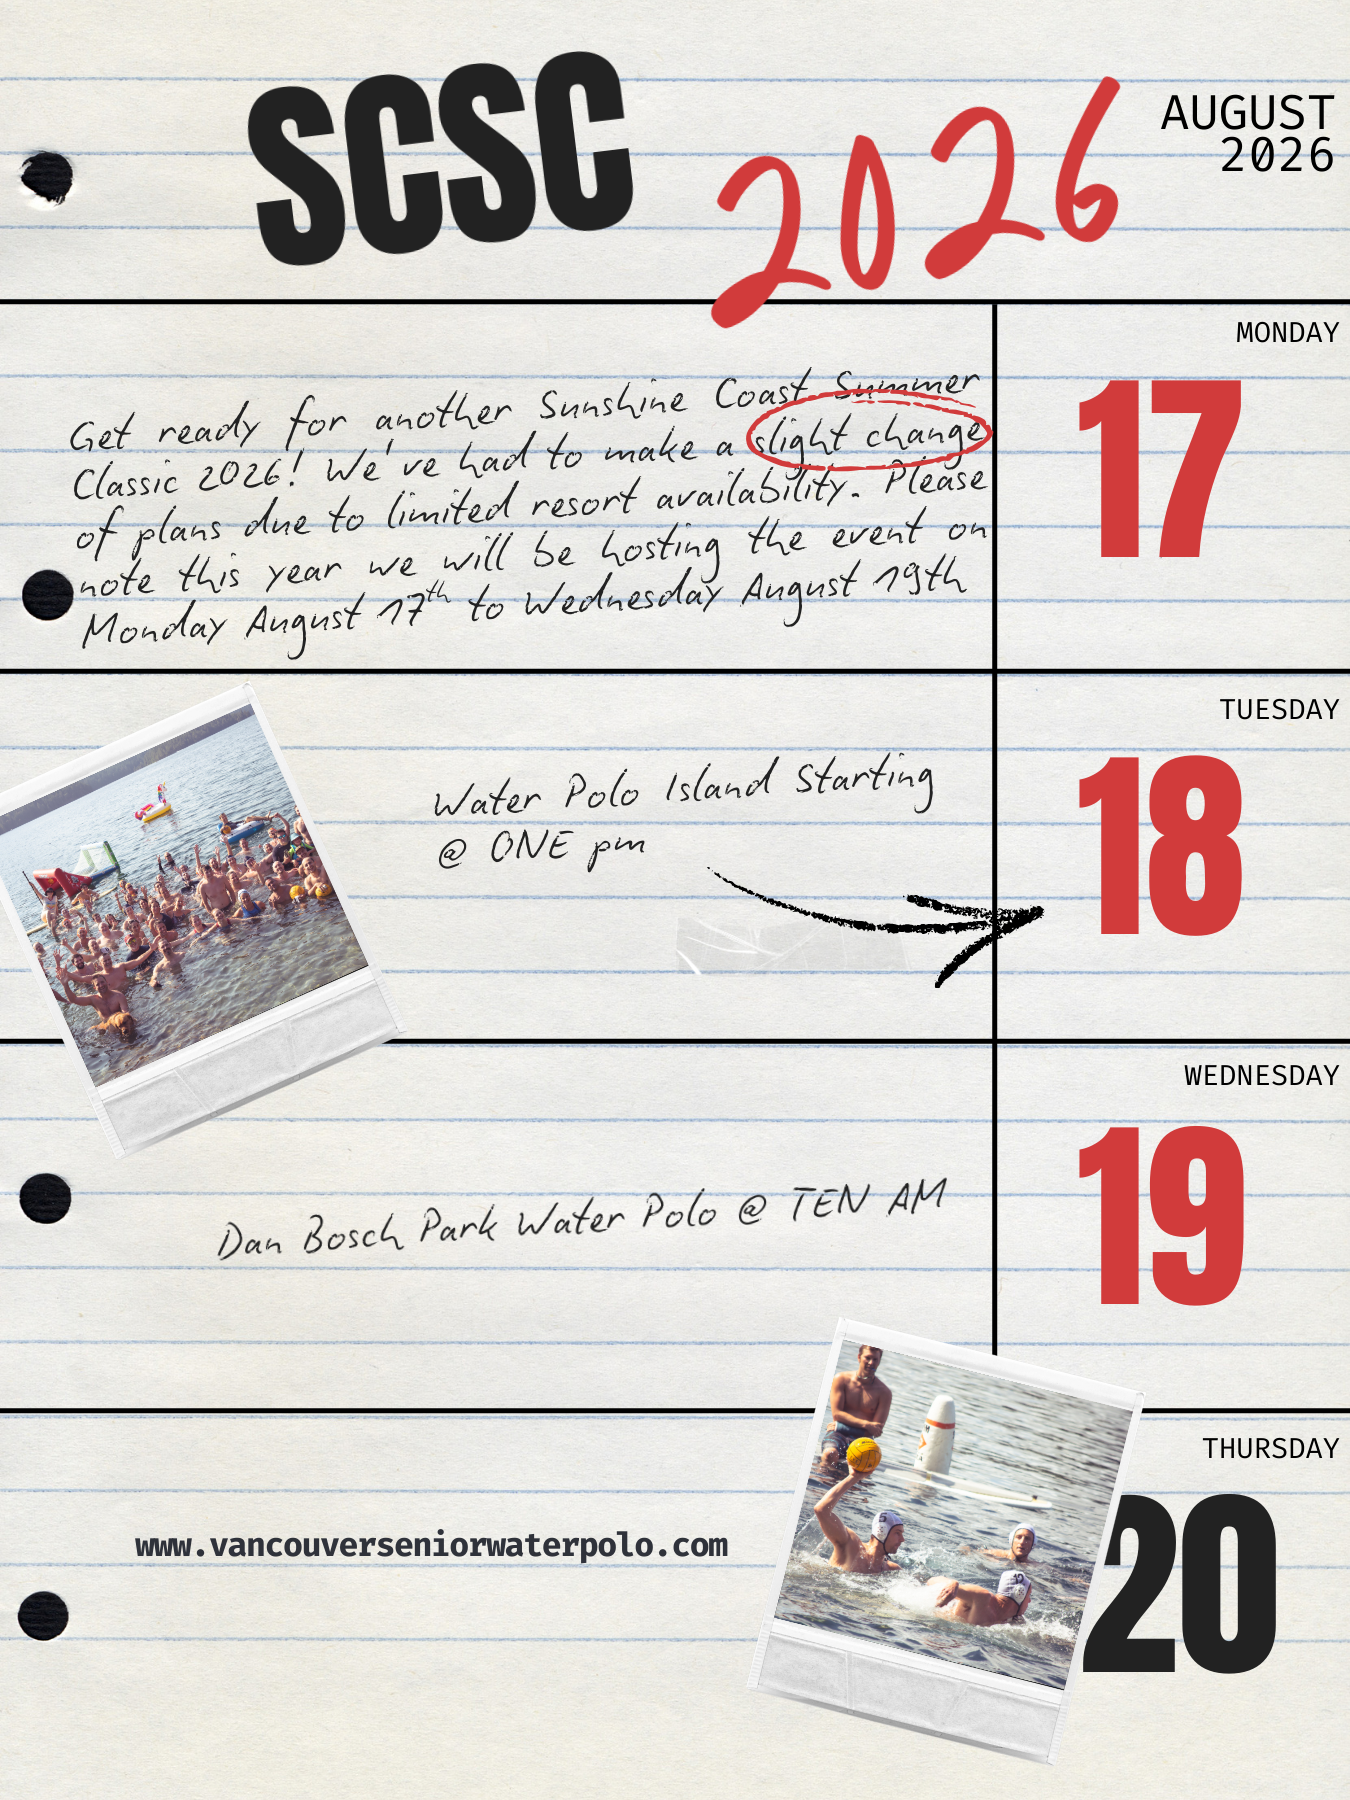 SCSC 2026
AUGUST
2026
MONDAY
17
Get ready for another Sunshine Coast Summer
Classic 2026! We've had to make a slight change
of plans due to limited resort availability. Please
note this year we will be hosting the event on
Monday August 17th to Wednesday August 19th
TUESDAY
18
Water Polo Island Starting
@ ONE pm
WEDNESDAY
19
Dan Bosch Park Water Polo @ TEN AM
THURSDAY
20
www.vancouverseniorwaterpolo.com